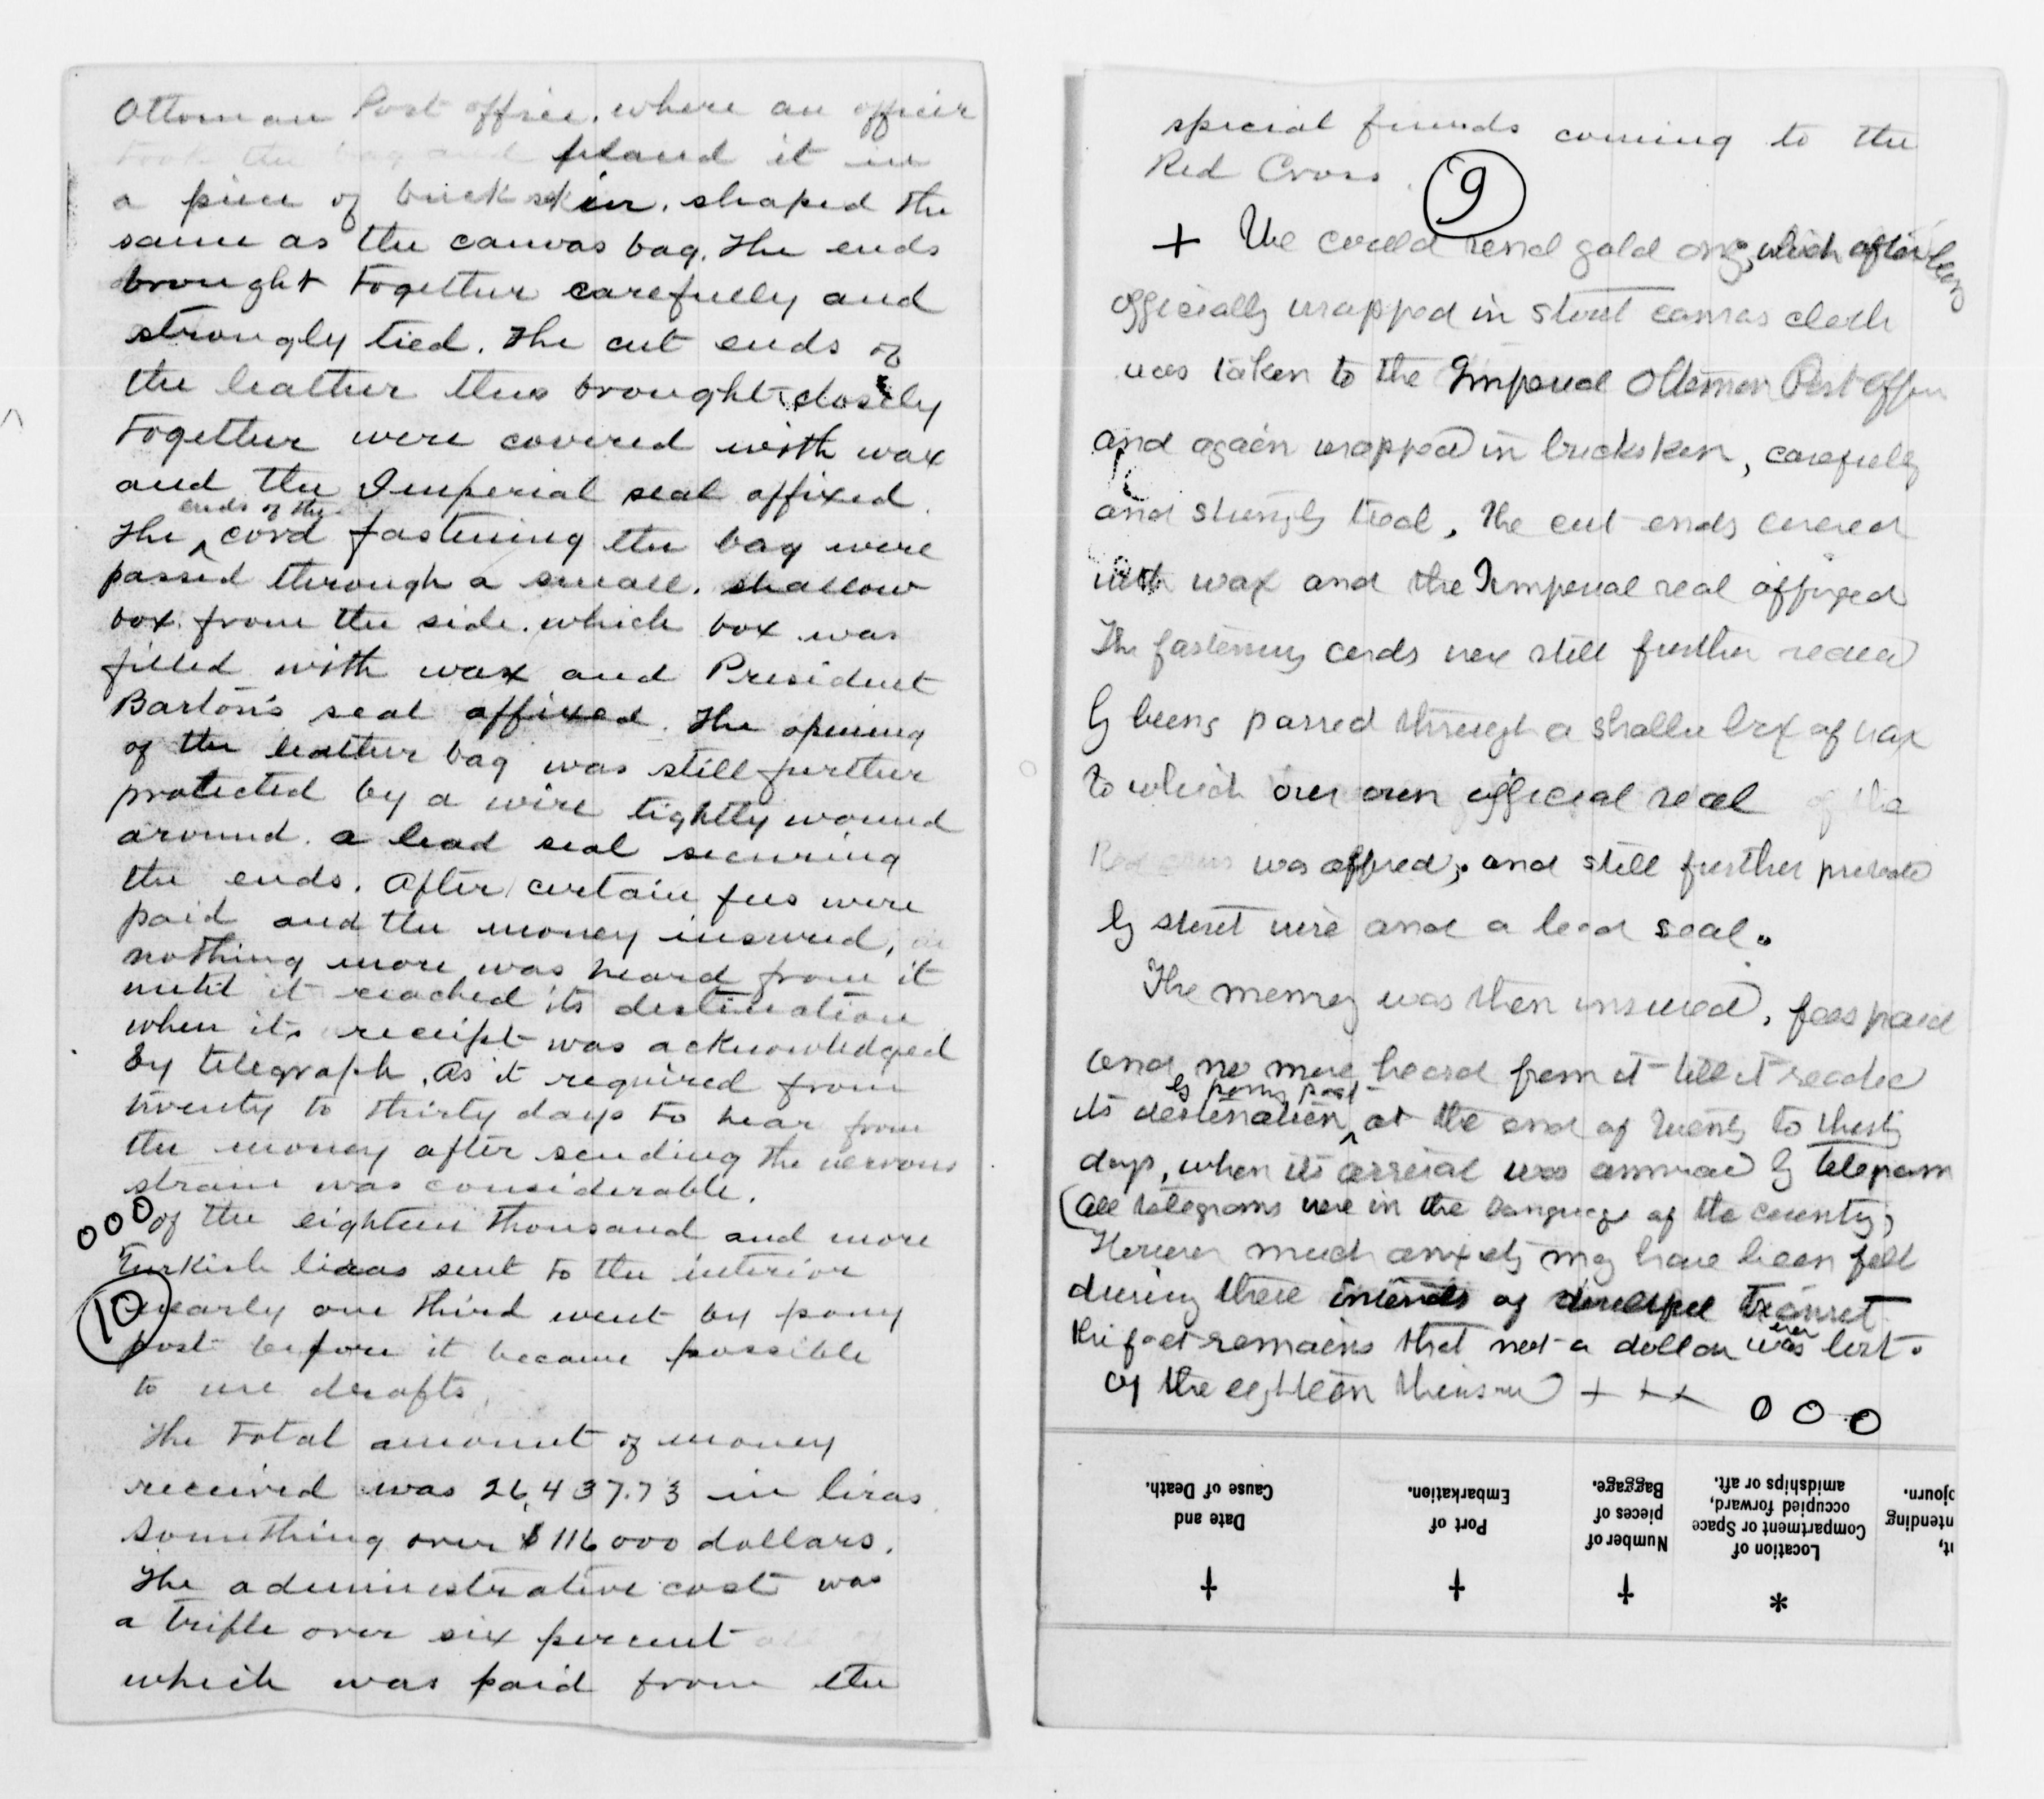 Ottoman Post office. where an officer
took the bag and placed it in
a piece of buckskin. shaped the
same as the canvas bag. The ends
brought together carefully and
strongly tied. The cut ends of
the leather thus brought closely
together were covered with wax
and the Imperial seal affixed.
ends of the
The ^ cord fastening the bag were
passed through a small. shallow
box from the side. which box was
filled with wax and President
Barton's seal affixed. The opening
of the leather bag was still further
protected by a wire tightly wound
around. a lead seal securing
the ends. After certain fees were
paid and the money insured,
nothing more was heard from it
until it reached its destination
when its receipt was acknowledged
by telegraph. As it required from
twenty to thirty days to hear from
the money after sending the nervous
strain was considerable.
000 of the eighteen thousand and more
Turkish liras sent to the interior
10 nearly one third went by pony
post before it became possible
to use drafts.
The total amount of money
received was 26,437.73 in liras
something over $116000 dollars.
The administrative cost was
a trifle over six percent
which was paid from the
special funds coming to the
Red Cross.
9
+ We could send gold only, which after being
officially wrapped in stout canvas cloth
was taken to the Imperial Ottoman Post Office
and again wrapped in buckskin, carefully
and strongly tied, The cut ends covered
with wax and the Imperial seal affixed
The fastening cords were still further sealed
by being passed through a shallow box of wax
to which our own official seal of the
Red Cross was affixed, and still further
by stout wire and a lead seal.
The money was then insured, fees paid
and no more heard from it till it reached
by pony post
its destination ^ at the end of twenty to thirty
days, when its arrival was announced by telegram
(All telegrams were in the language of the country)
However much anxiety may have been felt
during these intervals of transit
the fact remains that not a dollar was ever lost.
of the eighteen thousand + + + 000
Date and
Cause of Death.
†
Port of
Embarkation.
†
Number of
pieces of
Baggage.
†
Location of
Compartment or Space
occupied forward,
amidships or aft.
*